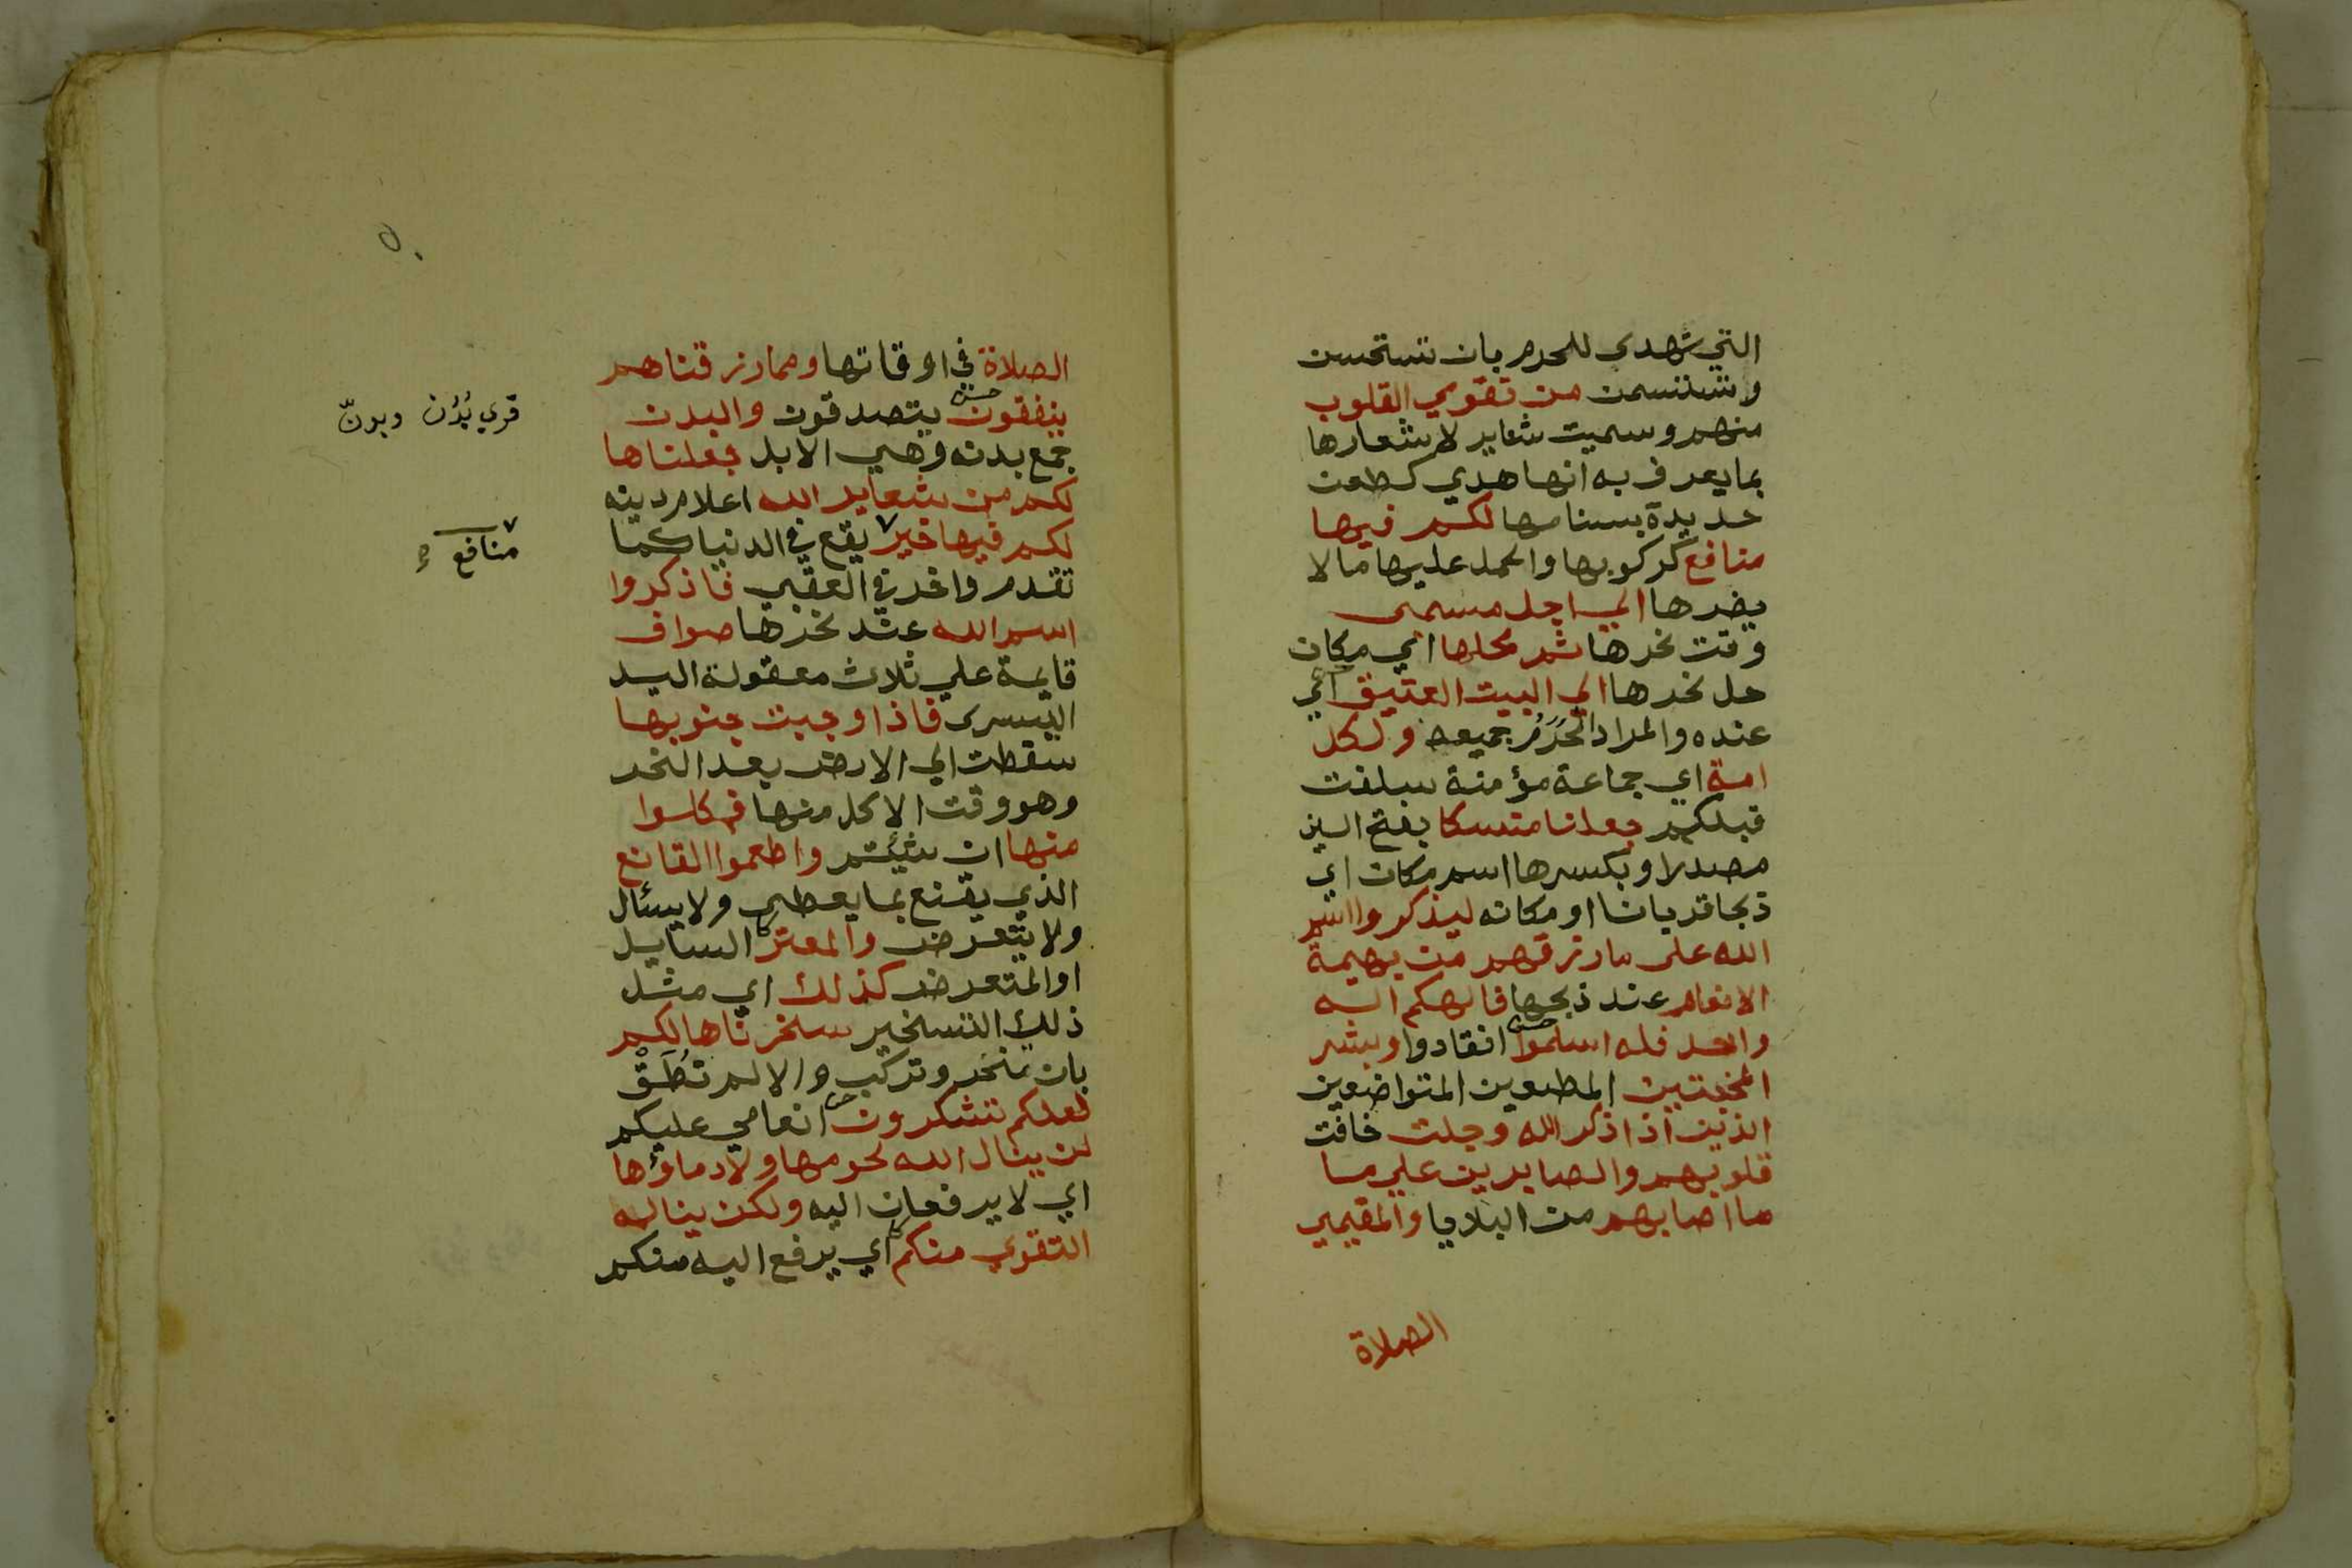 التي تهدي للحرم بان تستحسن
وتستسمن من تقوي القلوب
منهم وسميت شعاير لاشعارها
بما يعرف به انها هدي كطعن
حديدة بسنامها لكم فيها
منافع كركوبها والحمل عليها مالا
يضرها الي اجل مسمى
وقت نحرها ثم محلها اي مكان
حل نحرها الي البيت العتيق اي
عنده والمراد الحَرَمُ جميعه ولكل
امة اي جماعة مؤمنة سلفت
قبلكم جعلنا منسكا بفتح السين
مصدرا وبكسرها اسم مكان اي
ذبحا قربانا او مكانه ليذكروا اسم
الله على ما رزقهم من بهيمة
الانعام عند ذبحها فالهكم اله
واحد فله اسلموا انقادوا وبشر
المخبتين المطيعين المتواضعين
الذين اذا ذكر الله وجلت خافت
قلوبهم والصابرين علي ما
ما اصابهم من البلايا والمقيمي
الصلاة
الصلاة في اوقاتها ومما رزقناهم
ينفقون يتصدقون والبدن
جمع بدنه وهي الابل جعلناها
لكم من شعاير الله اعلام دينه
لكم فيها خير يقع في الدنيا كما
تقدم واخر في العقبي فاذكروا
اسم الله عند نحرها صواف
قايمة علي ثلاث معقولة اليد
اليسرى فاذا وجبت جنوبها
سقطت الي الارض بعد النحر
وهو وقت الاكل منها فكلوا
منها ان شئتم واطعموا القانع
الذي يقنع بما يعطي ولا يسئال
ولا يتعرض والمعتر السايل
او المتعرض كذلك اي مثل
ذلك التسخير سخرناها لكم
بان تنحر وتركب والا لم تُطَقْ
لعلكم تشكرون انعامي عليكم
لن ينال الله لحومها ولا دماؤها
اي لا يرفعان اليه ولكن يناله
التقوي منكم اي يرفع اليه منكم
قري بُدُن وبدنّ
منافع